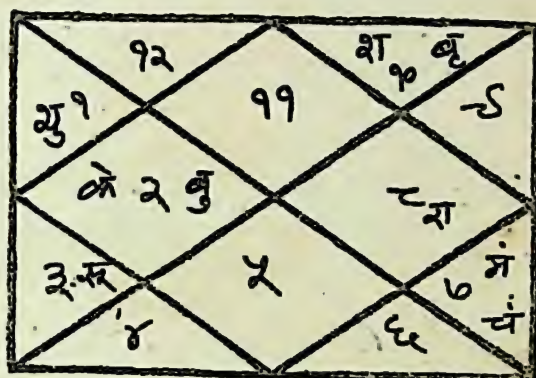 १२
श १० बृ
शु १
११
९
के २ बु
८ रा
३ सू
५
७ मं चं
४
६